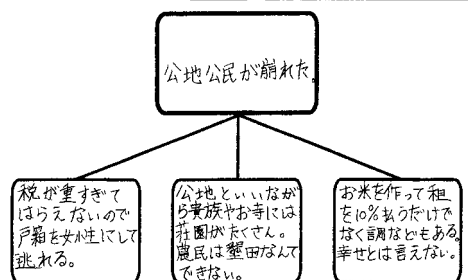 公地公民が崩れた。
税が重すぎて
はらえないので
戸籍を女性にして
逃れる。
公地といいなが
ら貴族やお寺には
荘園がたくさん。
農民は墾田なんて
できない。
お米を作って租
を10%払うだけで
なく調などもある。
幸せとは言えない。